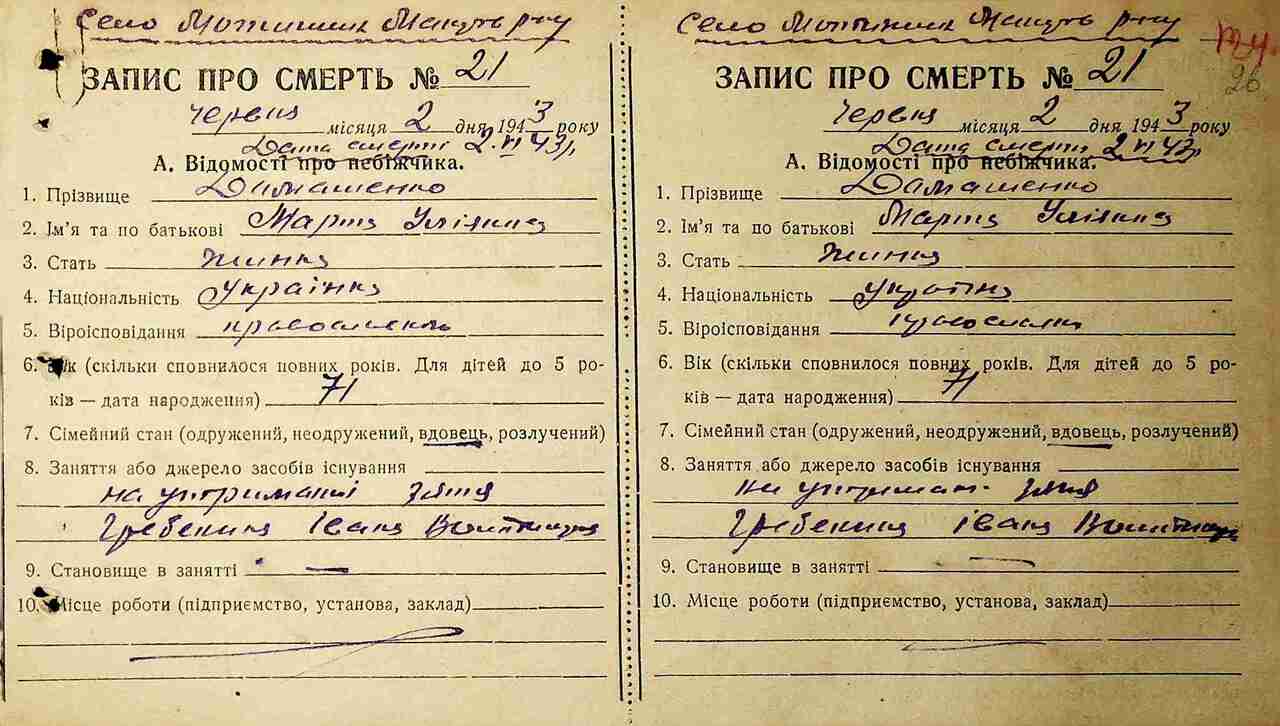 Село Мотижин Макув р-ну
ЗАПИС ПРО СМЕРТЬ № 21
Червня місяця 2 дня 1943 року
Дата смерті 2.VI 43р.
А. Відомості про небіжчика.
1. Прізвище Далмашенко
2. Ім'я та по батькові Марта Уліянна
3. Стать жинка
4. Національність Українка
5. Віроісповідання православна
6. Вік (скільки сповнилося повних років. Для дітей до 5 ро-
ків — дата народження) 71
7. Сімейний стан (одружений, неодружений, вдовець, розлучений)
8. Заняття або джерело засобів існування
на утриманні зятя
Гребенина Івана
9. Становище в занятті —
10. Місце роботи (підприємство, установа, заклад)
Село Мотижин Макув р-ну
26
ЗАПИС ПРО СМЕРТЬ № 21
Червня місяця 2 дня 1943 року
Дата смерті 2 VI 43р.
А. Відомості про небіжчика.
1. Прізвище Далмашенко
2. Ім'я та по батькові Марта Уліянна
3. Стать жинка
4. Національність
5. Віроісповідання
6. Вік (скільки сповнилося повних років. Для дітей до 5 ро-
ків — дата народження) 71
7. Сімейний стан (одружений, неодружений, вдовець, розлучений)
8. Заняття або джерело засобів існування
на зятя
Гребенина Івана
9. Становище в занятті —
10. Місце роботи (підприємство, установа, заклад)